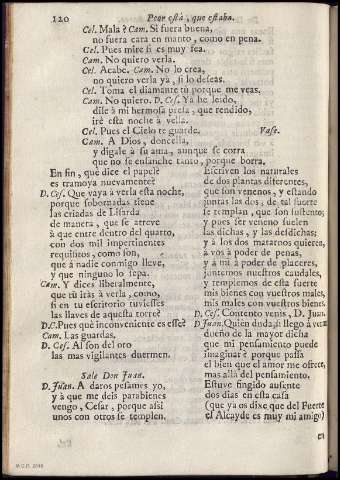 120 Peor està, que estaba.
Cel. Mala? Cam. Si fuera buena,
no fuera cara en manto, como en pena.
Cel. Pues mire si es muy fea.
Cam. No quiero verla.
Cel. Acabe. Cam. No lo crea,
no quiero verla ya, si lo deseas.
Cel. Toma el diamante tù porque me veas.
Cam. No quiero. D. Ces. Ya he leido,
dile à mi hermosa presa, que rendido,
irè esta noche à vella.
Cel. Pues el Cielo te guarde. Vase.
Cam. A Dios, doncella,
y digale à su ama, aunque se corra
que no se ensanche tanto, porque borra.
En fin, què dice el papel?
es tramoya nuevamente?
D. Ces. Que vaya à verla esta noche,
porque sobornadas tiene
las criadas de Lisarda
de manera, que se atreve
à que entre dentro del quarto,
con dos mil impertinentes
requisitos, como son,
que à nadie conmigo lleve,
y que ninguno lo sepa.
Cam. Y dices liberalmente,
que tù iràs à verla, como,
si en tu escritorio tuviesses
las llaves de aquesta torre?
D.C. Pues què inconveniente es esse?
Cam. Las guardas.
D. Ces. Al son del oro
las mas vigilantes duermen.
Sale Don Juan.
D. Juan. A daros pesames yo,
y à que me deis parabienes
vengo, Cesar, porque assi
unos con otros se templen.
Escriven los naturales
de dos plantas diferentes,
que son venenos, y estando
juntas las dos, de tal suerte
se templan, que son sustento;
y pues ser veneno suelen
las dichas, y las desdichas;
y à los dos matarnos quieren,
à vos à poder de penas,
y à mi à poder de placeres,
juntemos nuestros caudales,
y templemos de esta suerte
mis bienes con vuestros males,
mis males con vuestros bienes.
D. Ces. Contento venis, D. Juan.
D. Juan. Quien duda, si llego à verme
dueño de la mayor dicha
que mi pensamiento puede
imaginar? porque passa
el bien que el amor me ofrece,
mas allà del pensamiento.
Estuve fingido ausente
dos dias en esta casa
(que ya os dixe que del Fuerte
el Alcayde es muy mi amigo)